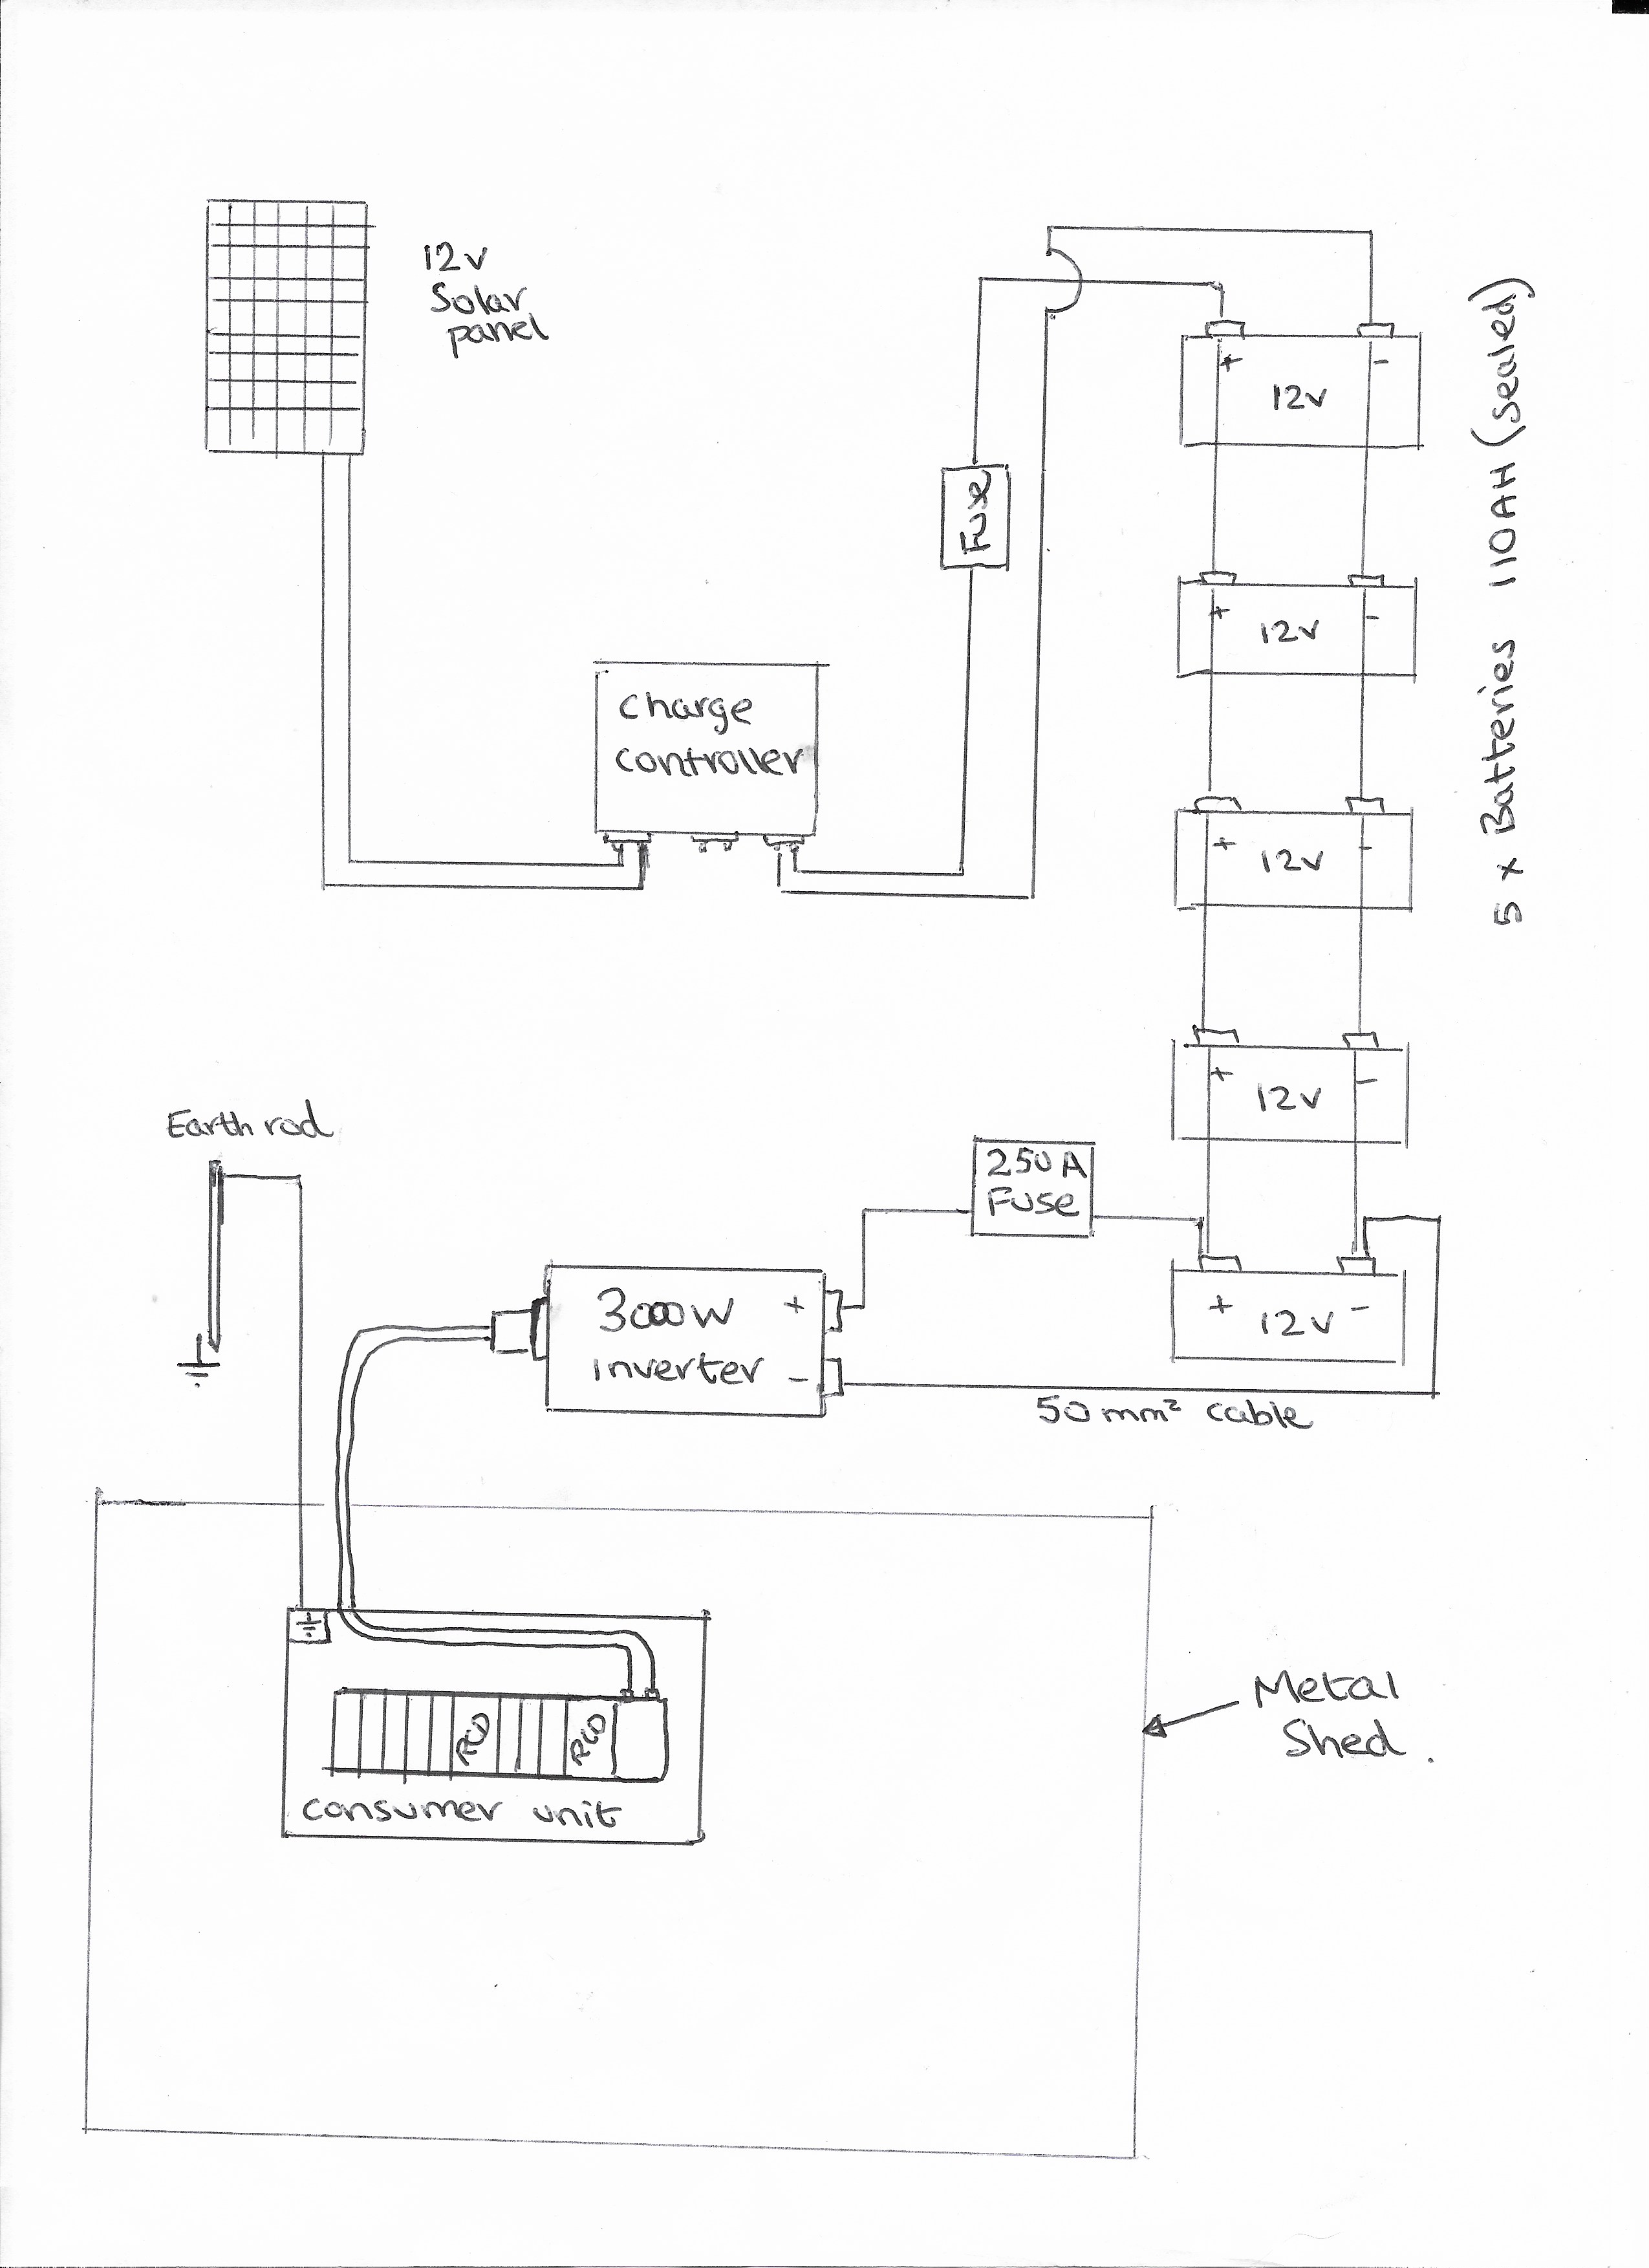 12v
Solar
panel
+
-
12v
Fuse
+
-
12v
5 x Batteries 110AH (sealed)
charge
controller
+
-
12v
+
-
12v
Earth rod
250A
Fuse
3000W
inverter
+
-
+
12v
-
50mm² cable
RCD
RCD
consumer unit
Metal
Shed.